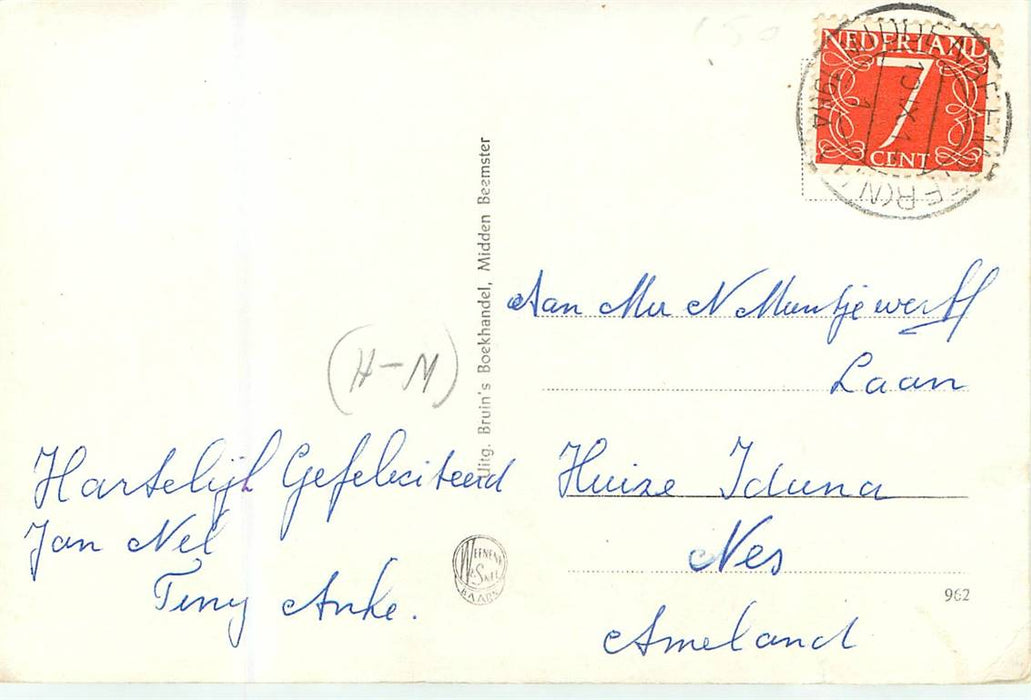 NEDERLAND
7
CENT
Uitg. Bruin's Boekhandel, Midden Beemster
Aan Mer N Muntjewerff
Laan
(H-M)
Hartelijk Gefeliciteerd
Jan Nel
Tiny Anke.
Huize Iduna
Nes
Ameland
WEENENK
& SNEL
BAARN
962